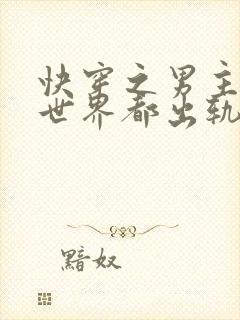 快穿之男主
世界都出轨
黯奴